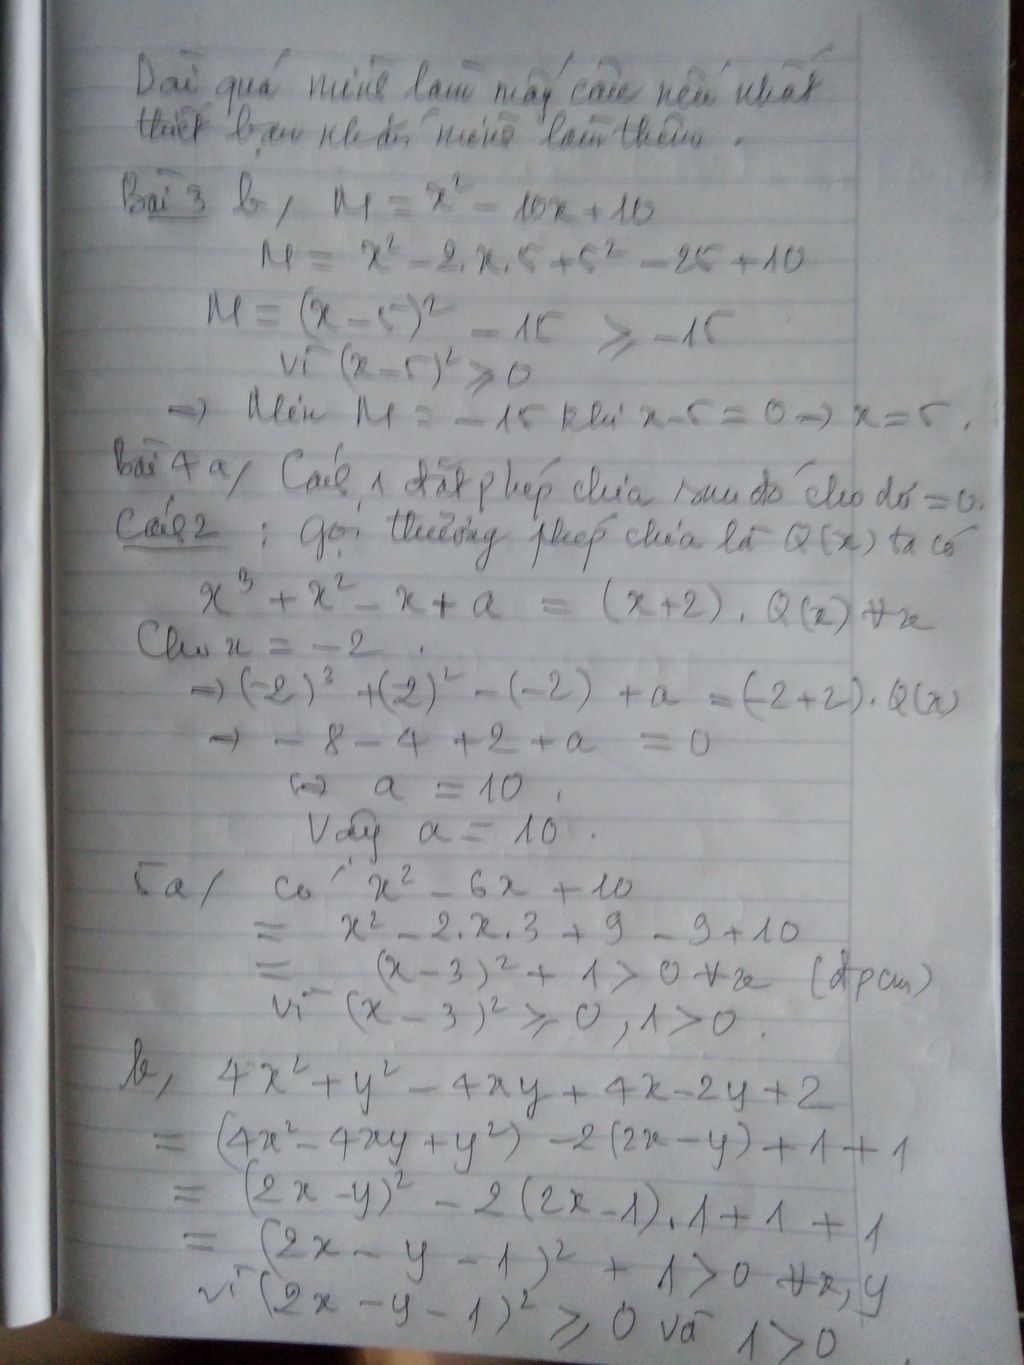 Dài quá mình làm mấy câu nếu nhất
thiết bạn nhắn mình làm thêm.
Bài 3 b, M = x² - 10x + 10
M = x² - 2.x.5 + 5² - 25 + 10
M = (x - 5)² - 15 ⩾ -15
vì (x - 5)² ⩾ 0
→ Min M = -15 khi x - 5 = 0 → x = 5.
Bài 4 a, Cách 1 đặt phép chia sau đó cho dư = 0.
Cách 2 : Gọi thương phép chia là Q(x) ta có
x³ + x² - x + a = (x+2). Q(x) ∀x
Cho x = -2.
→ (-2)³ + (-2)² - (-2) + a = (-2+2). Q(x)
→ - 8 - 4 + 2 + a = 0
↔ a = 10.
Vậy a = 10.
5a, có x² - 6x + 10
= x² - 2.x.3 + 9 - 9 + 10
= (x - 3)² + 1 > 0 ∀x (đpcm)
vì (x - 3)² ⩾ 0, 1 > 0.
b, 4x² + y² - 4xy + 4x - 2y + 2
= (4x² - 4xy + y²) - 2(2x - y) + 1 + 1
= (2x - y)² - 2(2x - 1).1 + 1 + 1
= (2x - y - 1)² + 1 > 0 ∀x, y
vì (2x - y - 1)² ⩾ 0 và 1 > 0.